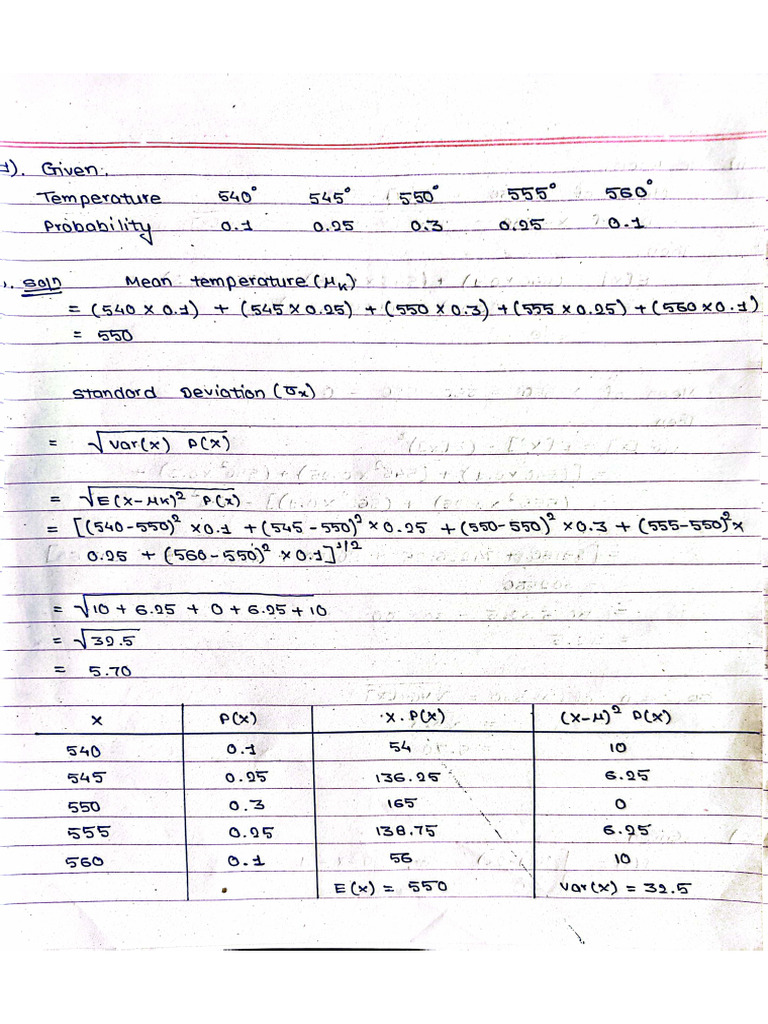 d). Given:
Temperature 540° 545° 550° 555° 560°
Probability 0.1 0.25 0.3 0.25 0.1
Soln Mean temperature (μx)
= (540 × 0.1) + (545 × 0.25) + (550 × 0.3) + (555 × 0.25) + (560 × 0.1)
= 550
Standard Deviation (σx)
= √var(x) P(x)
= √E(x-μx)² P(x)
= [(540-550)² × 0.1 + (545-550)² × 0.25 + (550-550)² × 0.3 + (555-550)² ×
0.25 + (560-550)² × 0.1]^1/2
= √10 + 6.25 + 0 + 6.25 + 10
= √32.5
= 5.70
x P(x) x.P(x) (x-μ)² P(x)
540 0.1 54 10
545 0.25 136.25 6.25
550 0.3 165 0
555 0.25 138.75 6.25
560 0.1 56 10
E(x) = 550 var(x) = 32.5